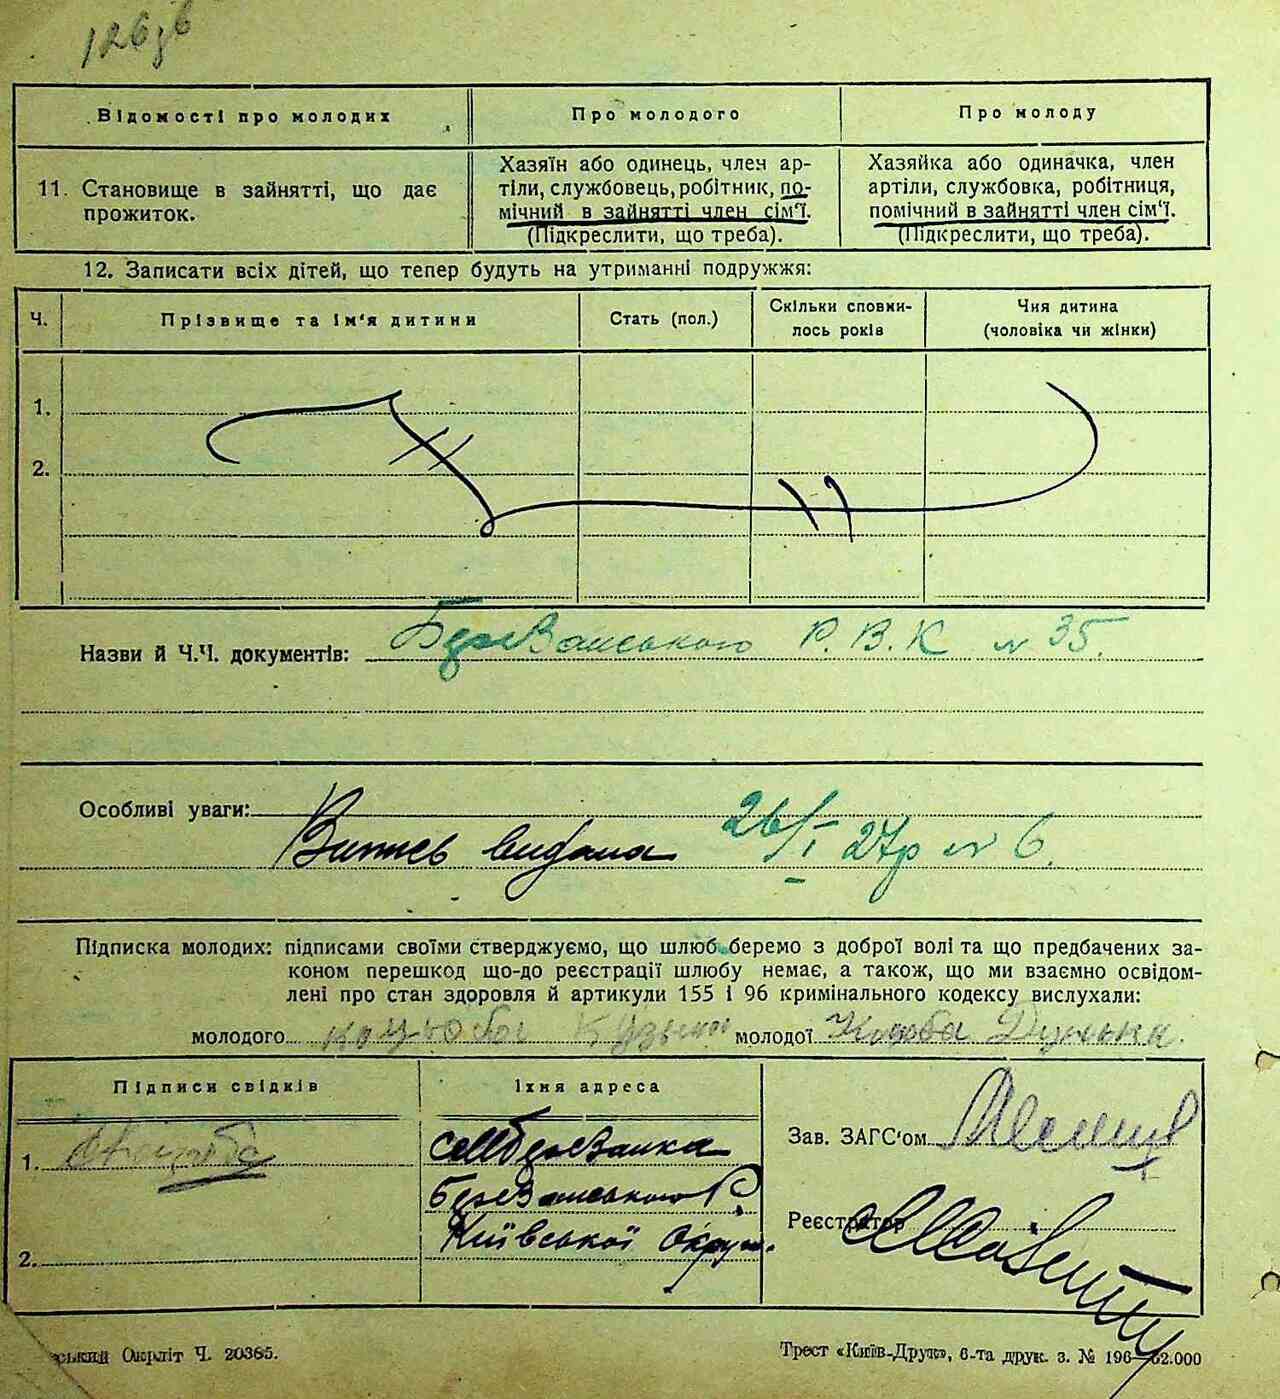 126зв
Відомості про молодих
Про молодого
Про молоду
11. Становище в зайнятті, що дає
прожиток.
Хазяїн або одинець, член ар-
тілі, службовець, робітник, по-
мічний в зайнятті член сім'ї.
(Підкреслити, що треба).
Хазяйка або одиначка, член
артіли, службовка, робітниця,
помічний в зайнятті член сім'ї.
(Підкреслити, що треба).
12. Записати всіх дітей, що тепер будуть на утриманні подружжя:
Ч.
Прізвище та ім'я дитини
Стать (пол.)
Скільки сповни-
лось років
Чия дитина
(чоловіка чи жінки)
1.
2.
Назви й Ч.Ч. документів: Березанського Р.В.К № 35.
Особливі уваги:
Витяг видана 26/I 27р № 6.
Підписка молодих: підписами своїми стверджуємо, що шлюб беремо з доброї волі та що предбачених за-
коном перешкод що-до реєстрації шлюбу немає, а також, що ми взаємно освідом-
лені про стан здоровля й артикули 155 і 96 кримінального кодексу вислухали:
молодого Коцюба Кузьма молодої Коцюба Дунька.
Підписи свідків
Їхня адреса
1.
2.
с. Березанка
Березанського Р.
Київської Округи.
Зав. ЗАГС'ом
Реєстратор
ський Окрліт Ч. 20365.
Трест «Київ-Друк», 6-та друк. з. № 196—62.000